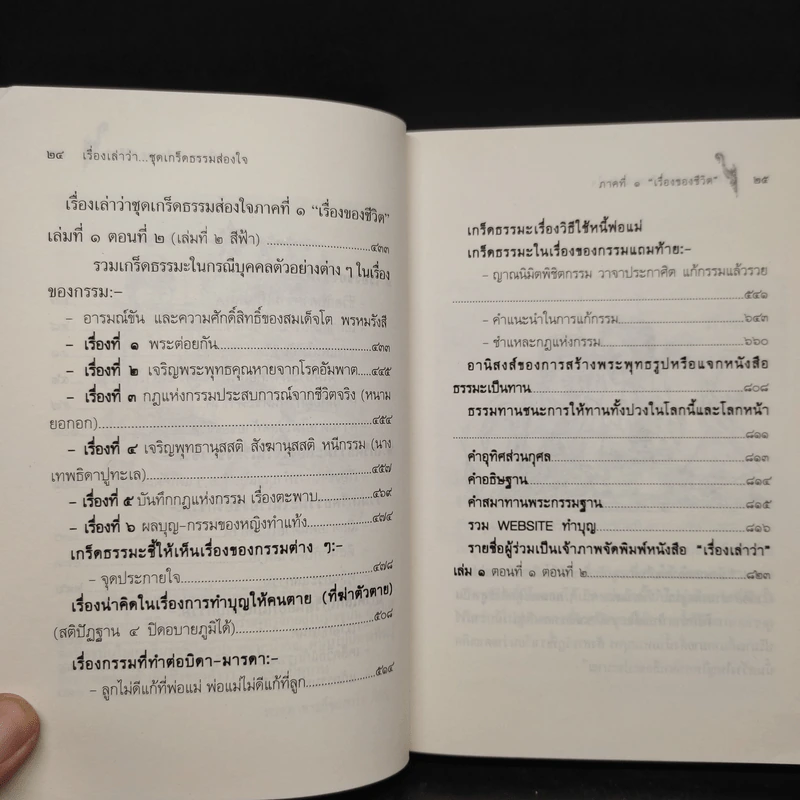 ๒๔ เรื่องเล่าว่า...ชุดเกร็ดธรรมส่องใจ
เรื่องเล่าว่าชุดเกร็ดธรรมส่องใจภาคที่ ๑ "เรื่องของชีวิต"
เล่มที่ ๑ ตอนที่ ๒ (เล่มที่ ๒ สีฟ้า) ........................๔๓๓
รวมเกร็ดธรรมะในกรณีบุคคลตัวอย่างต่าง ๆ ในเรื่อง
ของกรรม:-
- อารมณ์ขัน และความศักดิ์สิทธิ์ของสมเด็จโต พรหมรังสี
- เรื่องที่ ๑ พระต่อยกัน.................................๔๓๓
- เรื่องที่ ๒ เจริญพระพุทธคุณหายจากโรคอัมพาต......๔๔๕
- เรื่องที่ ๓ กฎแห่งกรรมประสบการณ์จากชีวิตจริง (หนาม
ยอกอก)..................................................๔๕๔
- เรื่องที่ ๔ เจริญพุทธานุสสติ สังฆานุสสติ หนีกรรม (นาง
เทพธิดาปูทะเล)..........................................๔๕๗
- เรื่องที่ ๕ บันทึกกฎแห่งกรรม เรื่องตะพาบ..........๔๖๙
- เรื่องที่ ๖ ผลบุญ-กรรมของหญิงทำแท้ง..............๔๗๔
เกร็ดธรรมะชี้ให้เห็นเรื่องของกรรมต่าง ๆ:-
- จุดประกายใจ........................................๔๗๘
เรื่องน่าคิดในเรื่องการทำบุญให้คนตาย (ที่ฆ่าตัวตาย)
(สติปัฏฐาน ๔ ปิดอบายภูมิได้)..........................๕๐๘
เรื่องกรรมที่ทำต่อบิดา-มารดา:-
- ลูกไม่ดีแก้ที่พ่อแม่ พ่อแม่ไม่ดีแก้ที่ลูก...............๕๑๔
ภาคที่ ๑ "เรื่องของชีวิต" ๒๕
เกร็ดธรรมะเรื่องวิธีใช้หนี้พ่อแม่
เกร็ดธรรมะในเรื่องของกรรมแถมท้าย:-
- ญาณนิมิตพิชิตกรรม วาจาประกาศิต แก้กรรมแล้วรวย
........................................................๕๔๑
- คำแนะนำในการแก้กรรม............................๖๔๓
- ชำแหละกฎแห่งกรรม................................๖๖๐
อานิสงส์ของการสร้างพระพุทธรูปหรือแจกหนังสือ
ธรรมะเป็นทาน..........................................๘๐๘
ธรรมทานชนะการให้ทานทั้งปวงในโลกนี้และโลกหน้า
........................................................๘๑๑
คำอุทิศส่วนกุศล........................................๘๑๓
คำอธิษฐาน..............................................๘๑๔
คำสมาทานพระกรรมฐาน...............................๘๑๕
รวม WEBSITE ทำบุญ...................................๘๑๖
รายชื่อผู้ร่วมเป็นเจ้าภาพจัดพิมพ์หนังสือ "เรื่องเล่าว่า"
เล่ม ๑ ตอนที่ ๑ ตอนที่ ๒..............................๘๒๓